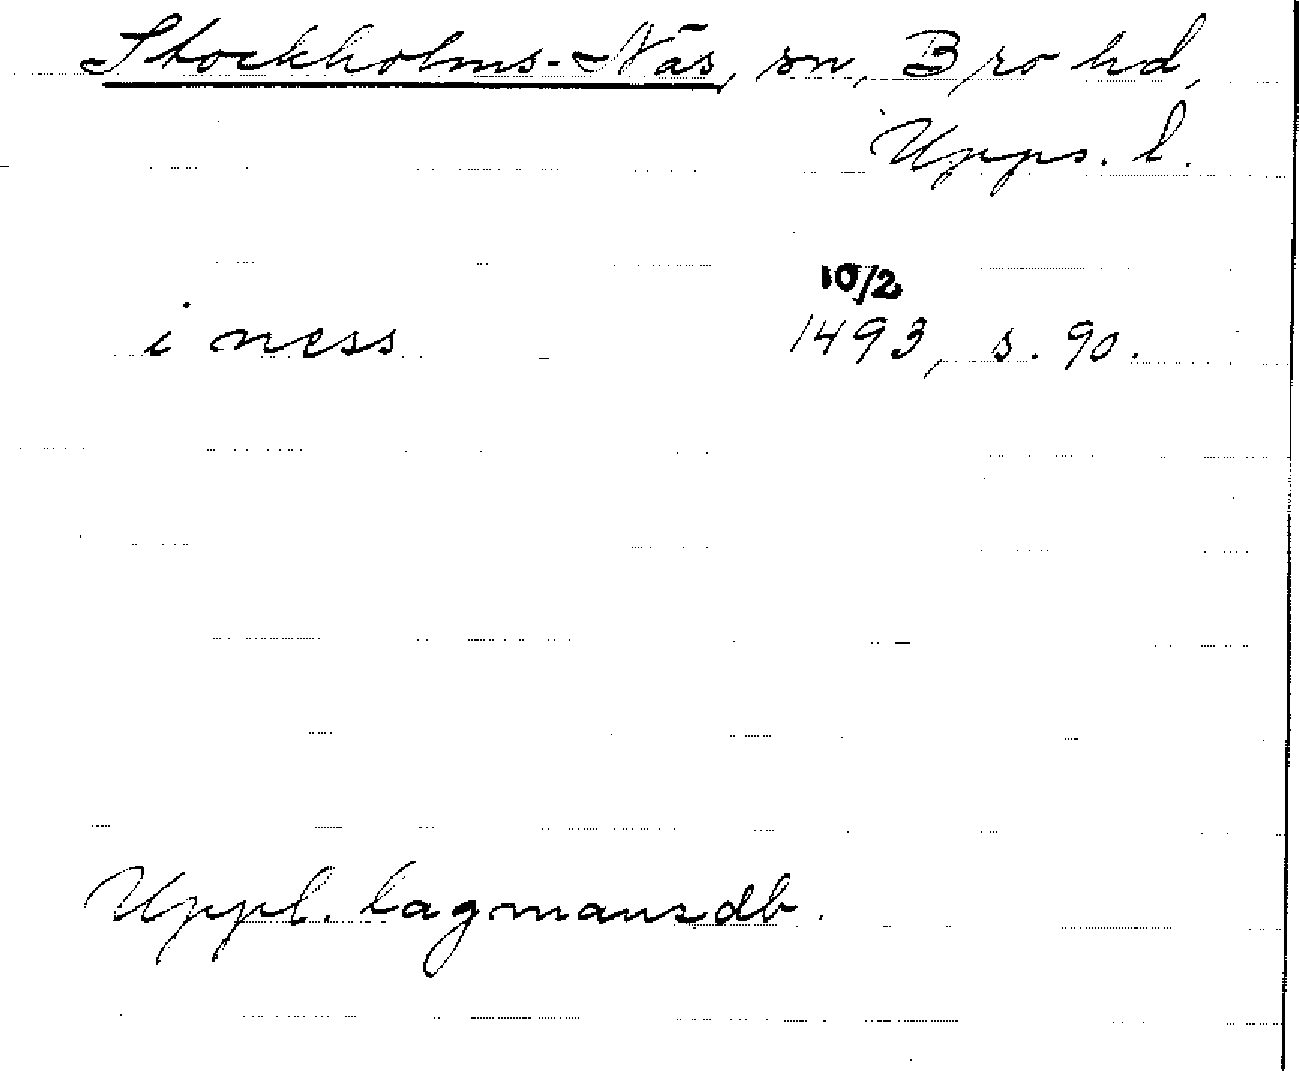 Stockholms-Näs, sn, Bro hd,
Upps. l.
10/2
i ness 1493, s. 90.
Uppl. lagmansdb.